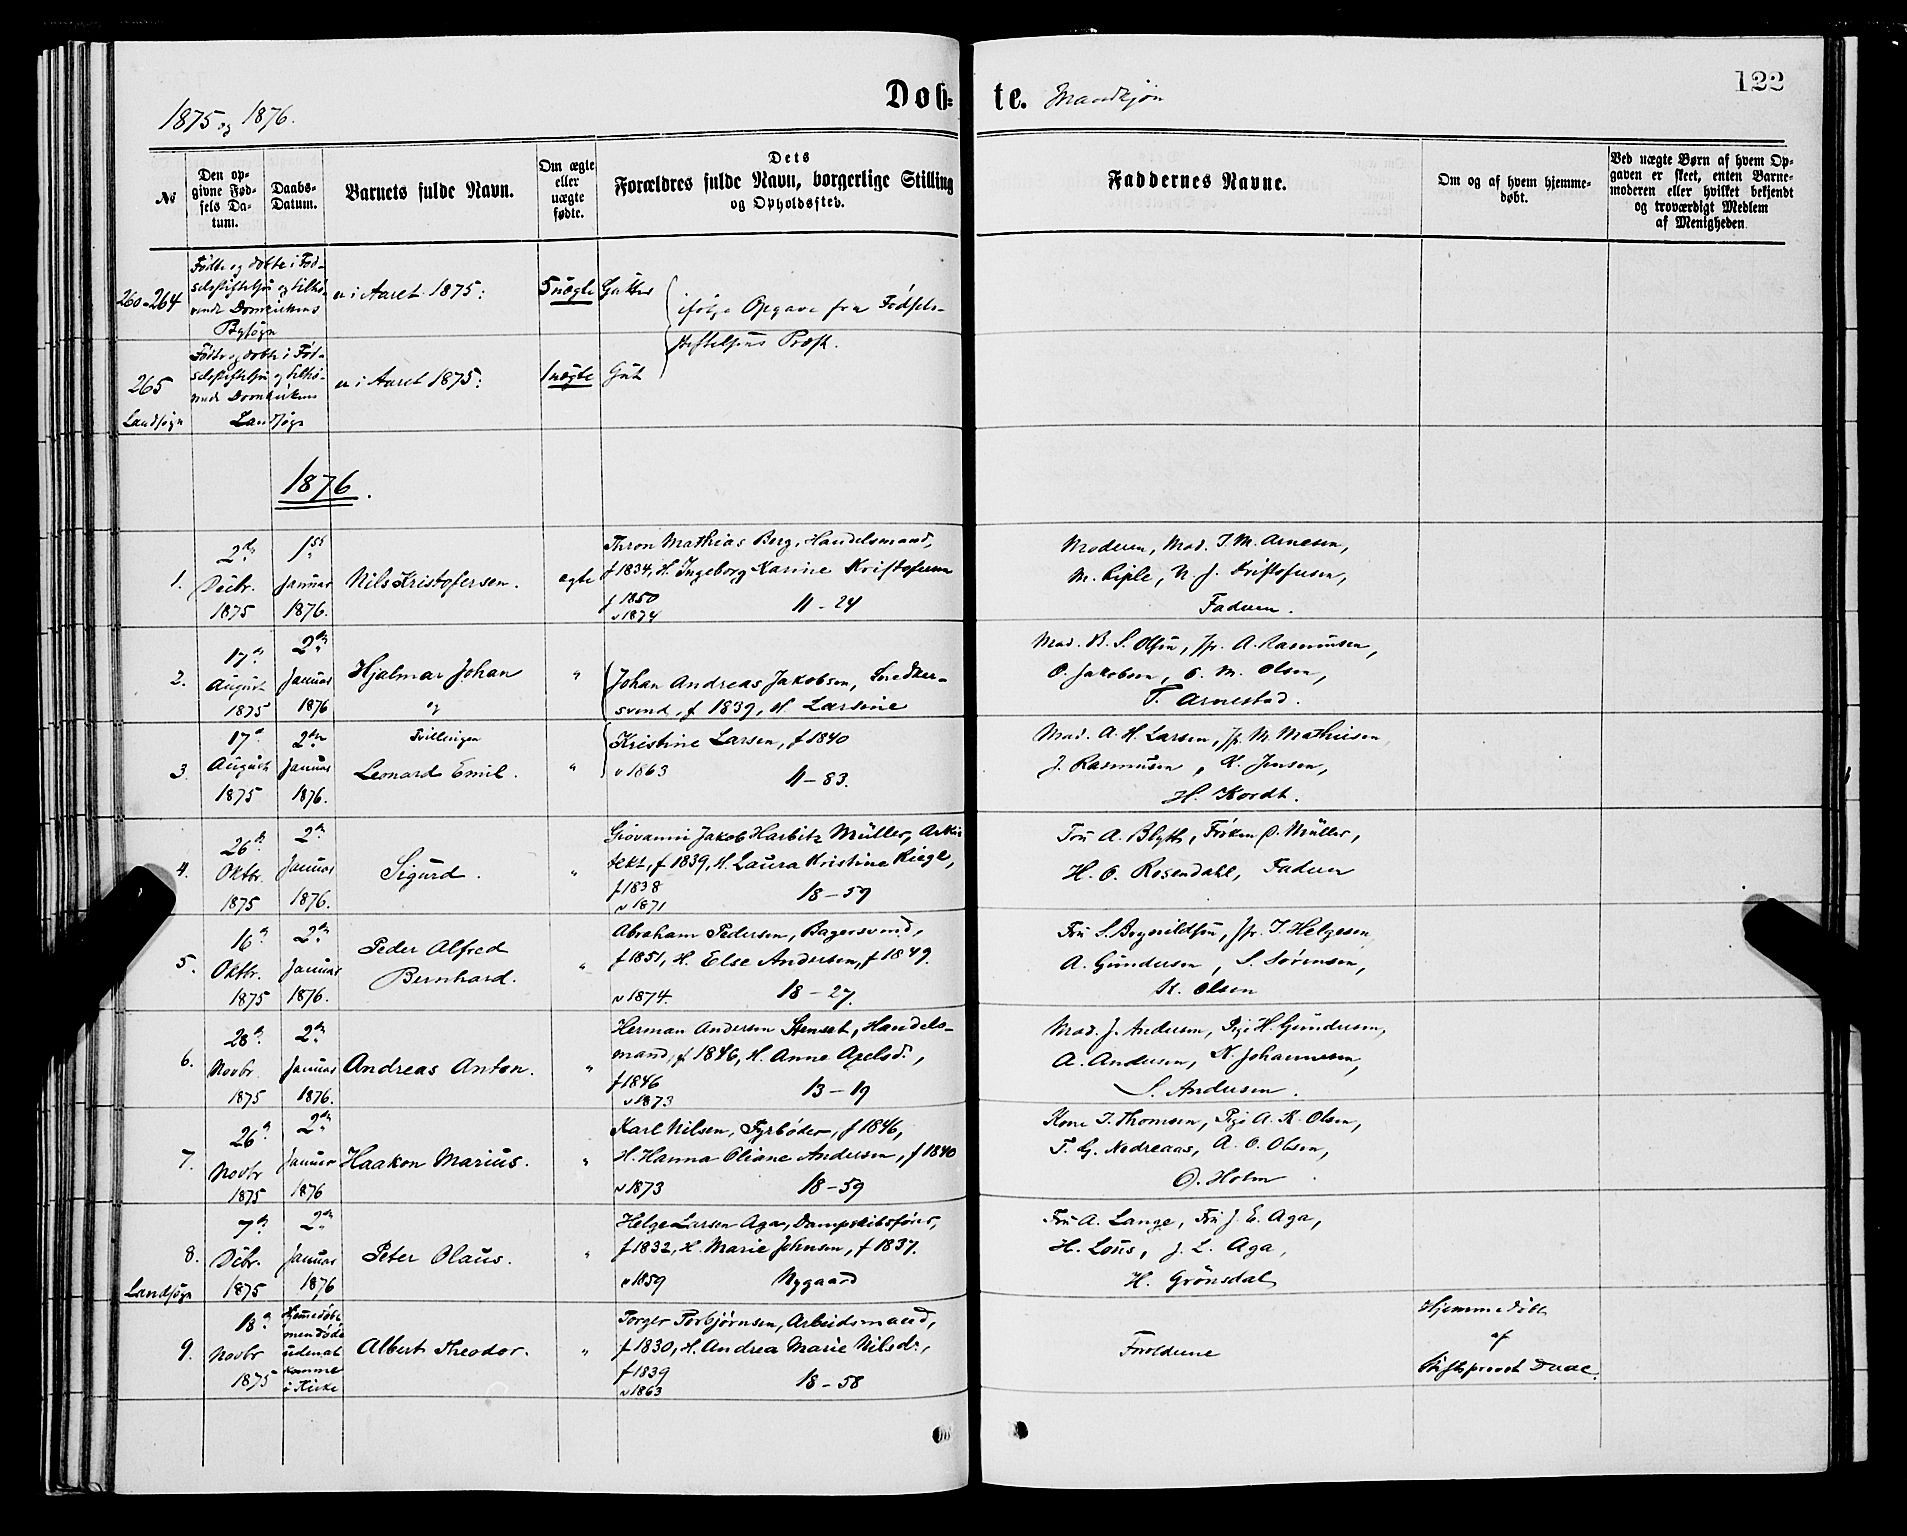 1875 og 1876.
Døbte. Mandkjøn
122
No
Den opgivne Fødsels Datum.
Daabs-Datum.
Barnets fulde Navn.
Om ægte eller uægte fødte.
Dets Forældres fulde Navn, borgerlige Stilling og Opholdssted.
Faddernes Navne.
Om og af hvem hjemmedøbt.
Ved uægte Børn af hvem Opgaven er skeet, enten Barnemoderen eller hvilket bekjendt og troværdigt Medlem af Menigheden
260-264
Fødte og døbte i Fød-
selsstiftelsen og tilhø-
rende Domkirkens
Bysogn
er i Aaret 1875:
5 uægte
Gutter
ifølge Opgave fra Fødsels-
stiftelsens Præst.
265
Landsogn
Fødte og døbte i Fød-
selsstiftelsen og tilhø-
rende Domkirkens
Landsogn
er i Aaret 1875:
1 uægte
Gut
1876.
1.
2den
Decbr.
1875
1ste
Januar
1876.
Nils Kristofersen.
egte
Thron Mathias Berg, Handelsmand,
f 1834, H. Ingeborg Karine Kristofersen
f 1850
v 1874
11-24
Moderen, Mad. J. M. Arnesen,
M. Riple, N. J. Kristofersen,
Faderen.
2.
17de
August
1875
2den
Januar
1876
Hjalmar Johan
og
"
Johan Andreas Jakobsen, Snedker-
svend, f 1839, H. Larsine
Mad. B. S. Olsen, Jfr. A. Rasmussen,
O. Jakobsen, O. M. Olsen,
T. Arnestad.
3.
17de
August
1875
2den
Januar
1876.
Tvillingen
Leonard Emil.
"
Kristine Larsen, f 1840
v 1863
11-83.
Mad. A. H. Larsen, Jfr. M. Mathiesen,
J. Rasmussen, K. Jensen,
H. Kordt.
4.
26de
Oktbr.
1875
2den
Januar
1876.
Sigurd.
"
Giovanni Jakob Harbitz Müller, Arki-
tekt, f 1839, H. Laura Kristine Riege,
f 1838
v 1871
18-59
Fru A. Blytt, Frøken O. Müller,
H. O. Rosendahl, Faderen
5.
16de
Oktbr.
1875
2den
Januar
1876.
Peder Alfred
Bernhard.
"
Abraham Pedersen, Bagersvend,
f 1851, H. Else Andersen, f 1849.
v 1874.
18-27.
Fru S. , Jfr. J. Helgesen,
A. Gundersen, S. Sørensen,
K. Olsen
6.
28de
Novbr.
1875
2den
Januar
1876.
Andreas Anton.
"
Herman Andersen Stenset, Handels-
mand, f 1846, H. Anne Axelsd.,
f 1846
v 1873
13-19
Mad. J. Andersen, Pige H. Gundersen,
A. Andersen, N. Johannesen,
S. Andersen.
7.
26de
Novbr
1875
2den
Januar
1876
Haakon Marius.
"
Karl Nilsen, Fyrbøder, f 1846,
H. Hanna Oliane Andersen, f 1840
v 1873
18-59
Kone J. Thomsen, Pige A. K. Olsen,
T. G. Nedreaas, A. O. Olsen,
O. Holm
8.
Landsogn
7de
Decbr.
1875
2den
Januar
1876
Peter Olaus.
"
Helge Larsen Aga, Dampskibsfører,
f 1832, H. Marie Johnsen, f 1837.
v 1859
Nygaard
Fru A. Lange, Fru J. E. Aga,
H. Lous, J. L. Aga,
H. Grönsdal
9.
18de
Novbr
1875
Hjemmedøbt
men døde
uden at
komme
i Kirke
Albert Theodor.
"
Torger Torbjørnsen, Arbeidsmand,
f 1830, H. Andrea Marie Nilsd.,
f 1839
v 1863
18-58
Forældrene
Hjemmedøbt
af
Stiftsprovst Daae.